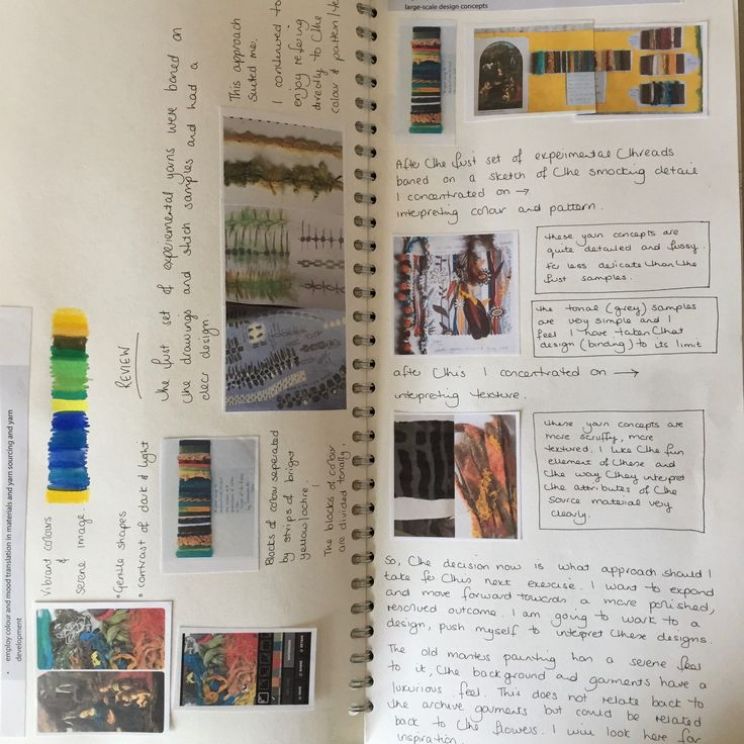 • employ colour and mood translation in materials and yarn sourcing and yarn
development
Vibrant colours
&
serene image.
*Gentle shapes
* contrast of dark & light
REVIEW
The first set of experimental yarns were based on
the drawings and stitch samples and had a
clear design
Blocks of colour seperated
by strips of bright
yellow/ochre.
The blocks of colour
are divided tonally.
This approach
suited me.
I continued to
enjoy refering
directly to the
colour & pattern/te
large-scale design concepts
After the first set of experimental threads
based on a sketch of the smocking detail
I concentrated on →
interpreting colour and pattern.
these yarn concepts are
quite detailed and fussy.
Far less delicate than the
first samples.
the tonal (grey) samples
are very simple and I
feel I have taken that
design (binding) to its limit
after this I concentrated on →
interpreting texture.
these yarn concepts are
more scruffy, more
textured. I like the fun
element of these and
the way they interpret
the attributes of the
source material very
clearly.
So, the decision now is what approach should I
take for this next exercise. I want to expand
and move forward towards a more polished,
resolved outcome. I am going to work to a
design, push myself to interpret these designs.
The old masters painting has a serene feel
to it, the background and garments have a
luxurious feel. This does not relate back to
the archive garments but could be related
back to the flowers. I will look here for
inspiration.